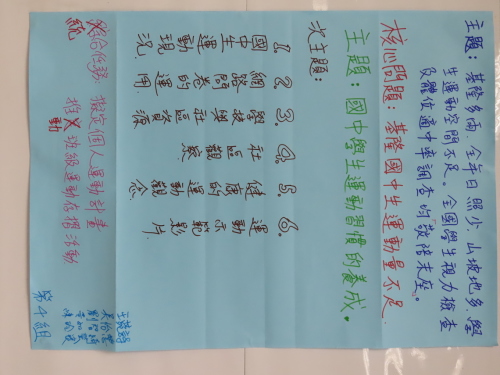 主題：基隆多雨，全年日照少，山坡地多，學
生運動空間不足。全國學生視力檢查
及體適通中率調查均敬陪末座。
核心問題：基隆國中生運動量不足
主題：國中學生運動習慣的養成。
次主題：
1. 國中生運動現況.
2. 網路問卷的運用
3. 學校與社區資源
4. 社區觀察
5. 健康的運動觀念
6. 運動示範影片
統合任務 擬定個人運動計畫
推動班級運動存摺活動
第4組